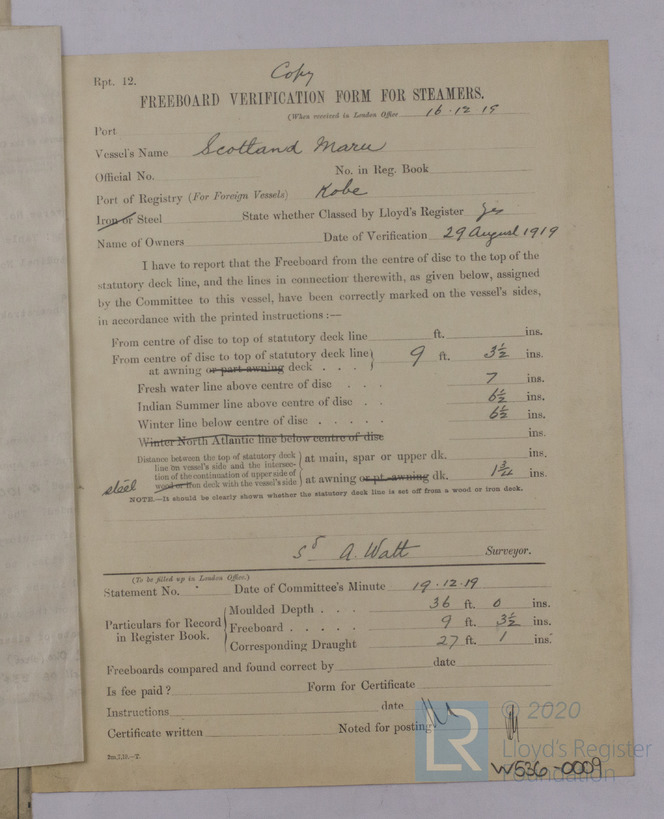 Rpt. 12.
Copy
FREEBOARD VERIFICATION FORM FOR STEAMERS.
(When received in London Office 16.12.19
Port
Vessel's Name Scotland Maru
Official No. No. in Reg. Book
Port of Registry (For Foreign Vessels) Kobe
Iron or Steel State whether Classed by Lloyd's Register yes
Name of Owners Date of Verification 29 August 1919
I have to report that the Freeboard from the centre of disc to the top of the
statutory deck line, and the lines in connection therewith, as given below, assigned
by the Committee to this vessel, have been correctly marked on the vessel's sides,
in accordance with the printed instructions :—
From centre of disc to top of statutory deck line ft. ins.
From centre of disc to top of statutory deck line
at awning or part awning deck . . . 9 ft. 3½ ins.
Fresh water line above centre of disc . . . 7 ins.
Indian Summer line above centre of disc . . 6½ ins.
Winter line below centre of disc . . . . . 6½ ins.
Winter North Atlantic line below centre of disc ins.
Distance between the top of statutory deck
line on vessel's side and the intersec-
tion of the continuation of upper side of
wood or iron deck with the vessel's side
at main, spar or upper dk. ins.
steel
at awning or pt. awning dk. 1¾ ins.
NOTE.—It should be clearly shown whether the statutory deck line is set off from a wood or iron deck.
sd A. Watt Surveyor.
(To be filled up in London Office.)
Statement No. Date of Committee's Minute 19.12.19
Particulars for Record
in Register Book.
Moulded Depth . . . 36 ft. 0 ins.
Freeboard . . . . . 9 ft. 3½ ins.
Corresponding Draught 27 ft. 1 ins.
Freeboards compared and found correct by date
Is fee paid? Form for Certificate
Instructions date
Certificate written Noted for posting
LR
© 2020
Lloyd's Register
Foundation
W536-0009